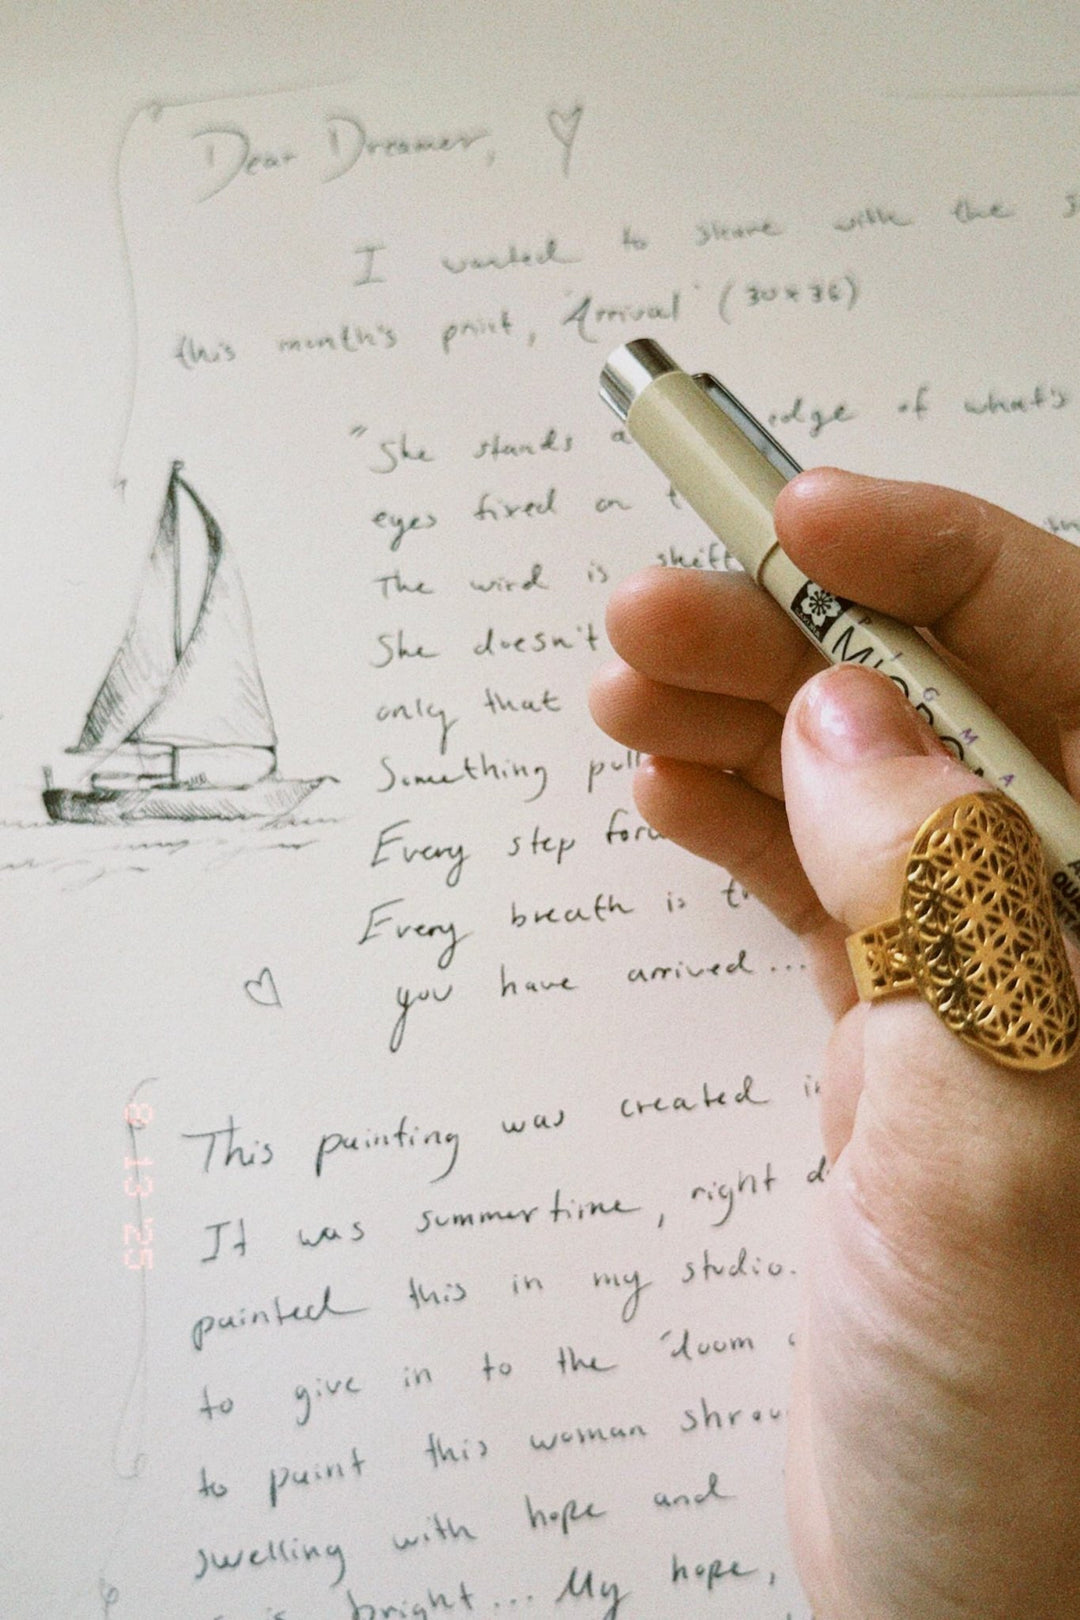 Dear Dreamer,
I wanted to share with the
this month's print, "Arrival" (30x36)
"She stands edge of what's
eyes fixed on
The wind is
She doesn't
only that
Something
Every step
Every breath is
you have arrived...
This painting was created
It was summertime, right
painted this in my studio.
to give in to the
to paint this woman
swelling with hope and
bright... My hope,
PIGMA
MICRON
8 13 '25